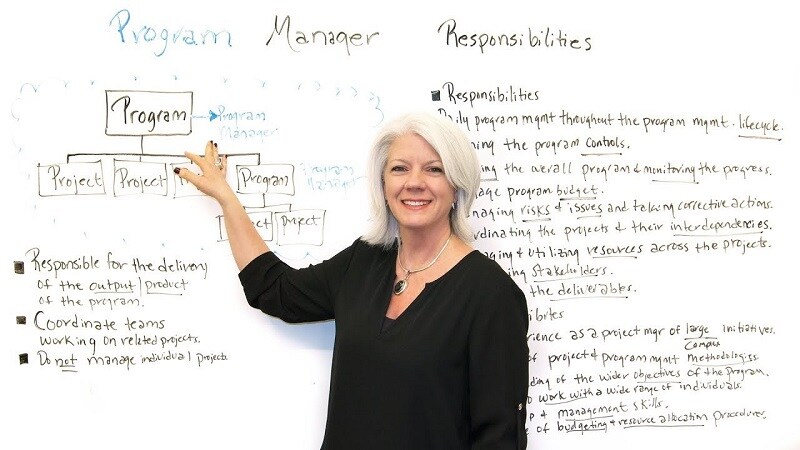 Program Manager Responsibilities
Program
Program
Manager
Project
Project
Program
Program
Manager
Project
Responsible for the delivery
of the output/product
of the program.
Coordinate teams
working on related projects.
Do not manage individual projects
Responsibilities
program mgmt throughout the program mgmt. lifecycle.
the program controls.
the overall program & monitoring the progress.
program budget.
risks & issues and taking corrective actions.
the projects & their interdependencies.
& utilizing resources across the projects.
stakeholders.
the deliverables.
as a project mgr of large initiatives.
Complex
of project & program mgmt methodologies.
of the wider objectives of the program.
to work with a wide range of individuals.
& management skills.
of budgeting & resource allocation procedures.